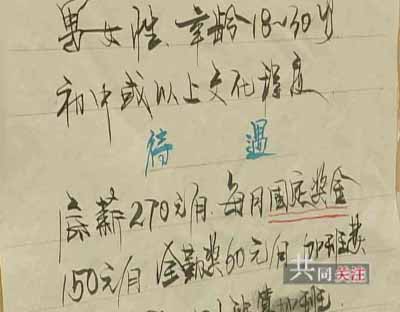 男女性、年龄18~30岁
初中或以上文化程度
待 遇
底薪270元/月 每月固定奖金
150元/月 全勤奖60元/月 加班奖
共同关注